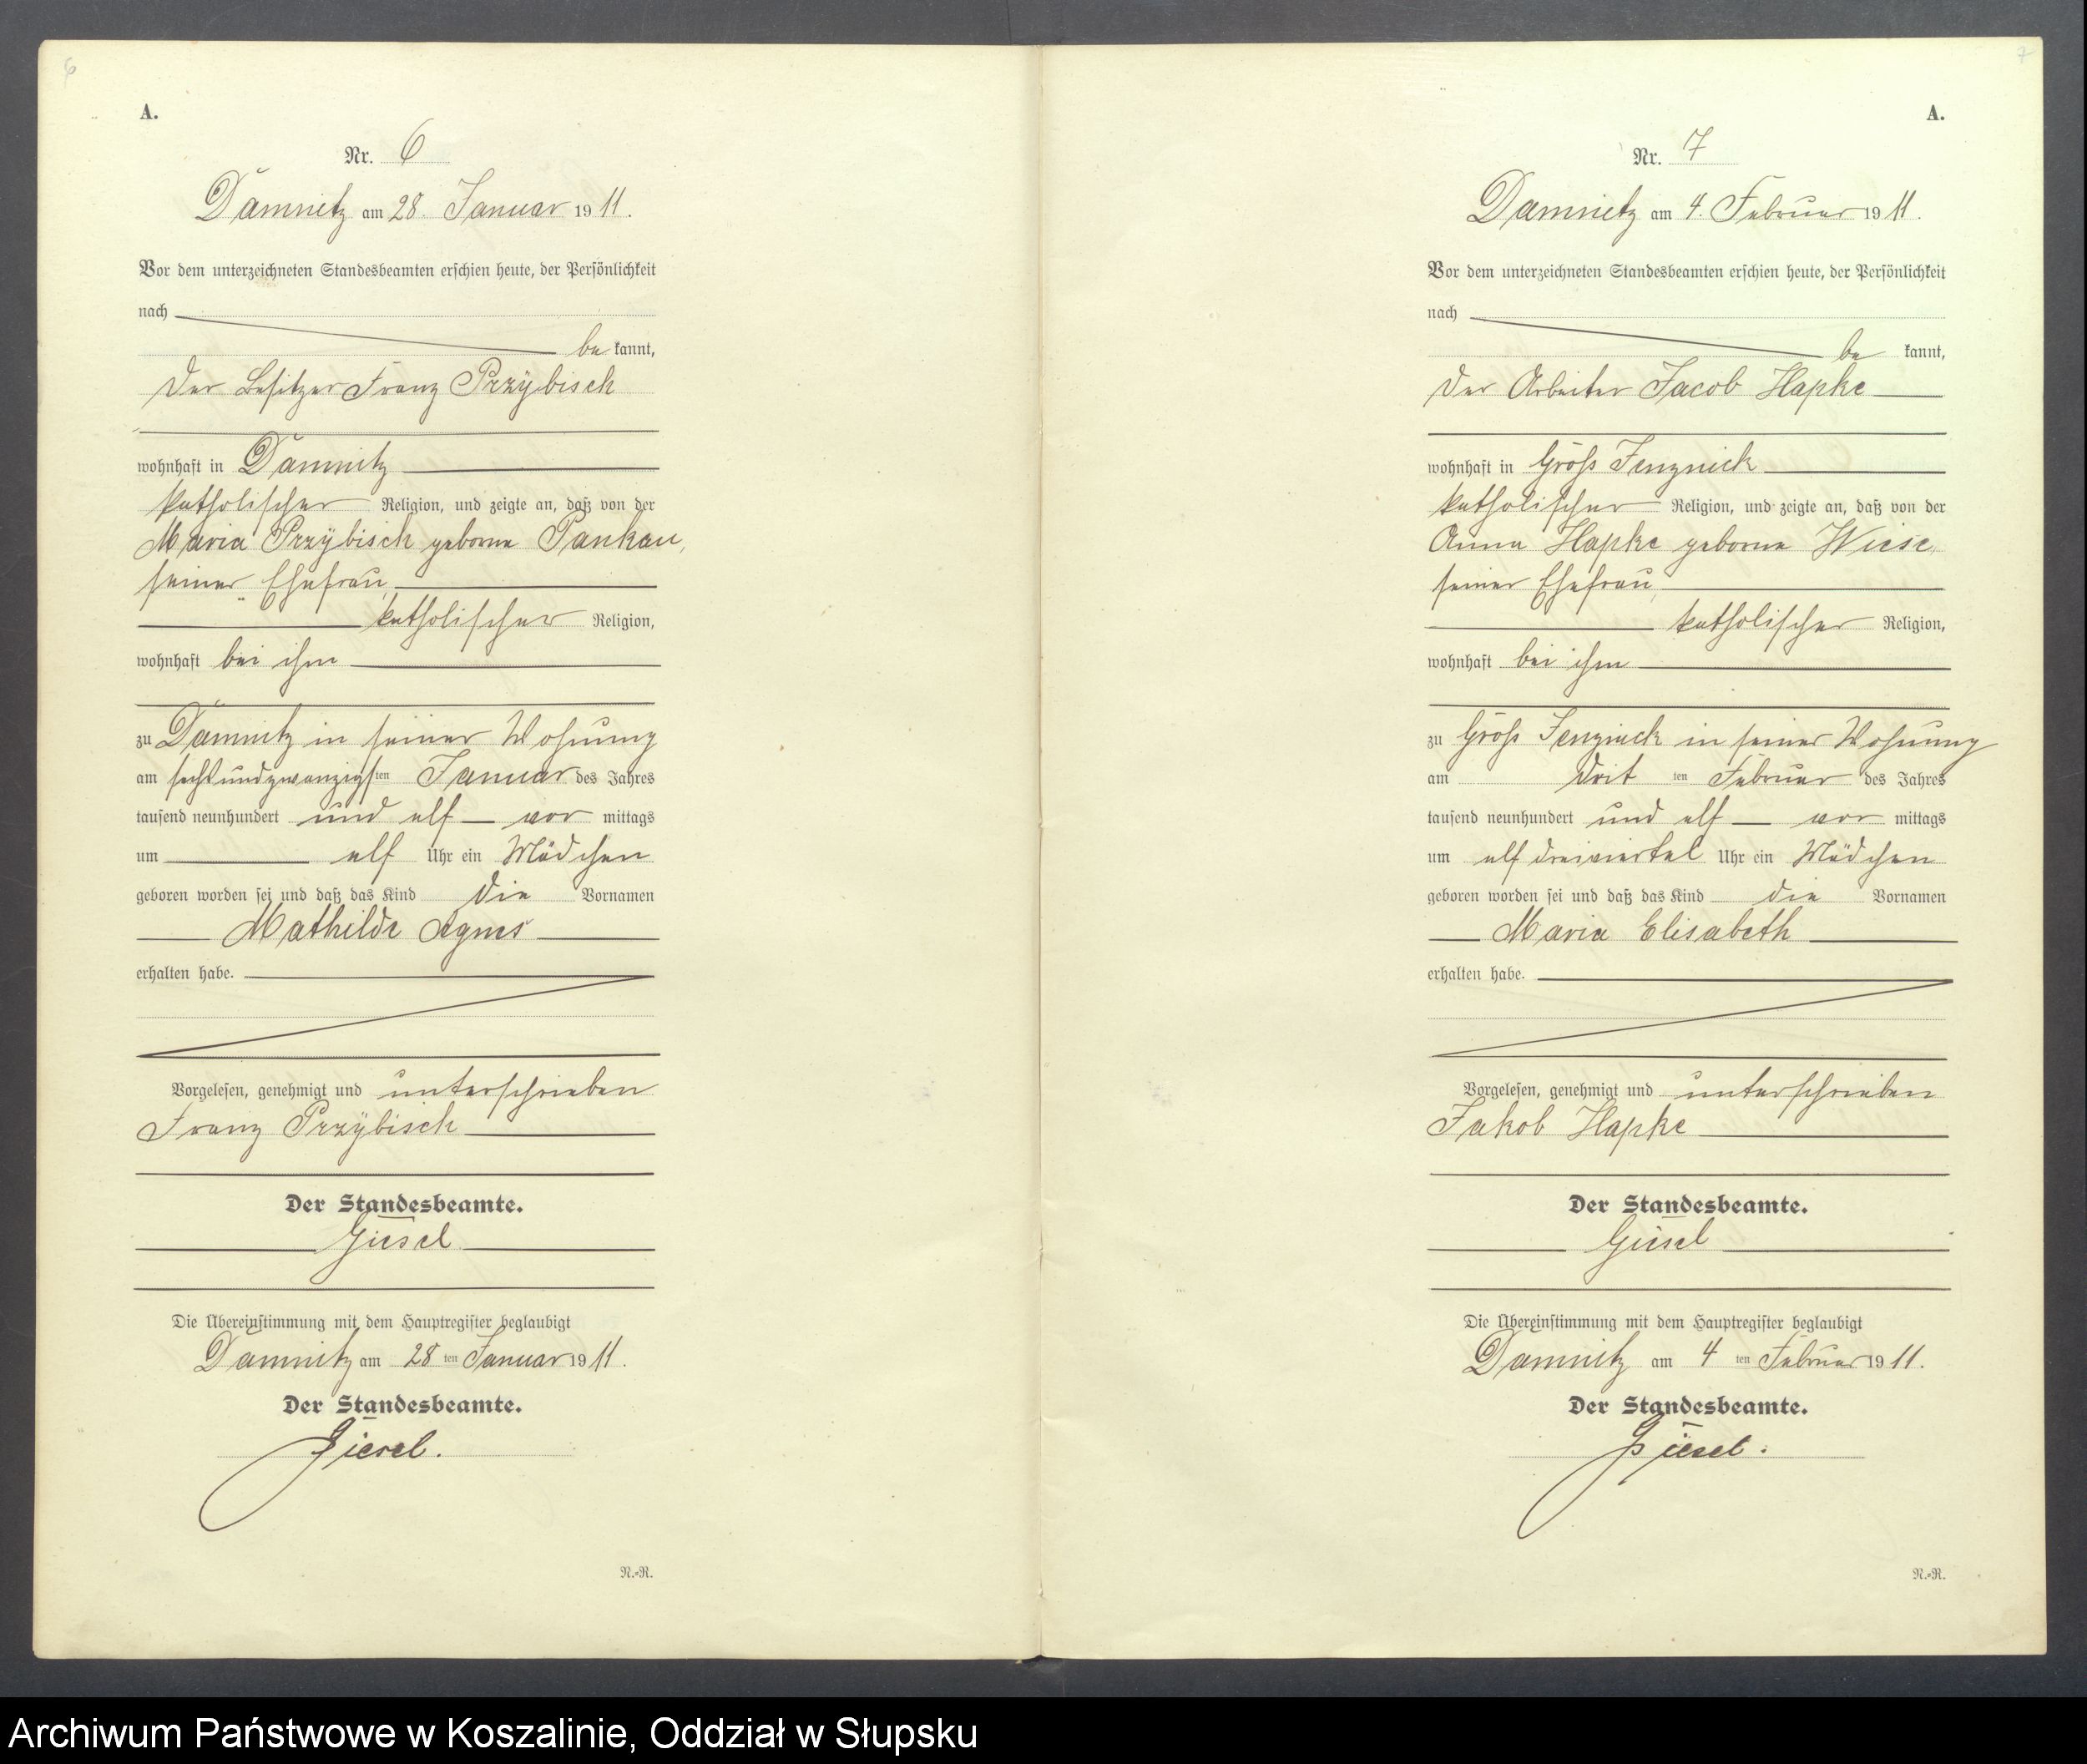 6
A.
Nr. 6
Damnitz am 28. Januar 1911.
Vor dem unterzeichneten Standesbeamten erschien heute, der Persönlichkeit
nach
be kannt,
der Besitzer Franz Przÿbisch
wohnhaft in Damnitz
katholischer Religion, und zeigte an, daß von der
Maria Przÿbisch geborne Pankau,
seiner Ehefrau,
katholischer Religion,
wohnhaft bei ihm
zu Damnitz in seiner Wohnung
am sechsundzwanzigsten Januar des Jahres
tausend neunhundert und elf vor mittags
um elf Uhr ein Mädchen
geboren worden sei und daß das Kind die Vornamen
Mathilde Agnes
erhalten habe.
Vorgelesen, genehmigt und unterschrieben
Franz Przÿbisch
Der Standesbeamte.
Giesel
Die Übereinstimmung mit dem Hauptregister beglaubigt
Damnitz am 28 ten Januar 1911.
Der Standesbeamte.
Giesel.
N.=R.
7
A.
Nr. 7
Damnitz am 4. Februar 1911.
Vor dem unterzeichneten Standesbeamten erschien heute, der Persönlichkeit
nach
be kannt,
der Arbeiter Jacob Hapke
wohnhaft in Groß Jenznick
katholischer Religion, und zeigte an, daß von der
Anna Hapke geborne Wiese,
seiner Ehefrau,
katholischer Religion,
wohnhaft bei ihm
zu Groß Jenznick in seiner Wohnung
am drit ten Februar des Jahres
tausend neunhundert und elf vor mittags
um elf dreiviertel Uhr ein Mädchen
geboren worden sei und daß das Kind die Vornamen
Maria Elisabeth
erhalten habe.
Vorgelesen, genehmigt und unterschrieben
Jakob Hapke
Der Standesbeamte.
Giesel
Die Übereinstimmung mit dem Hauptregister beglaubigt
Damnitz am 4 ten Februar 1911.
Der Standesbeamte.
Giesel.
N.=R.
Archiwum Państwowe w Koszalinie, Oddział w Słupsku